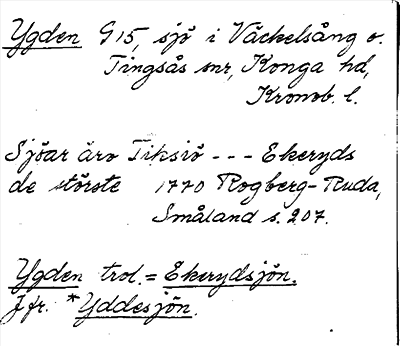 Ygden G 15, sjö i Väckelsång o.
Tingsås snr, Konga hd,
Kronob. l.
Sjöar äro Tiksiö --- Ekeryds
de störste 1770 Rogberg-Ruda,
Småland s. 207.
Ygden trol. = Ekerydsjön.
Jfr. *Yddesjön.